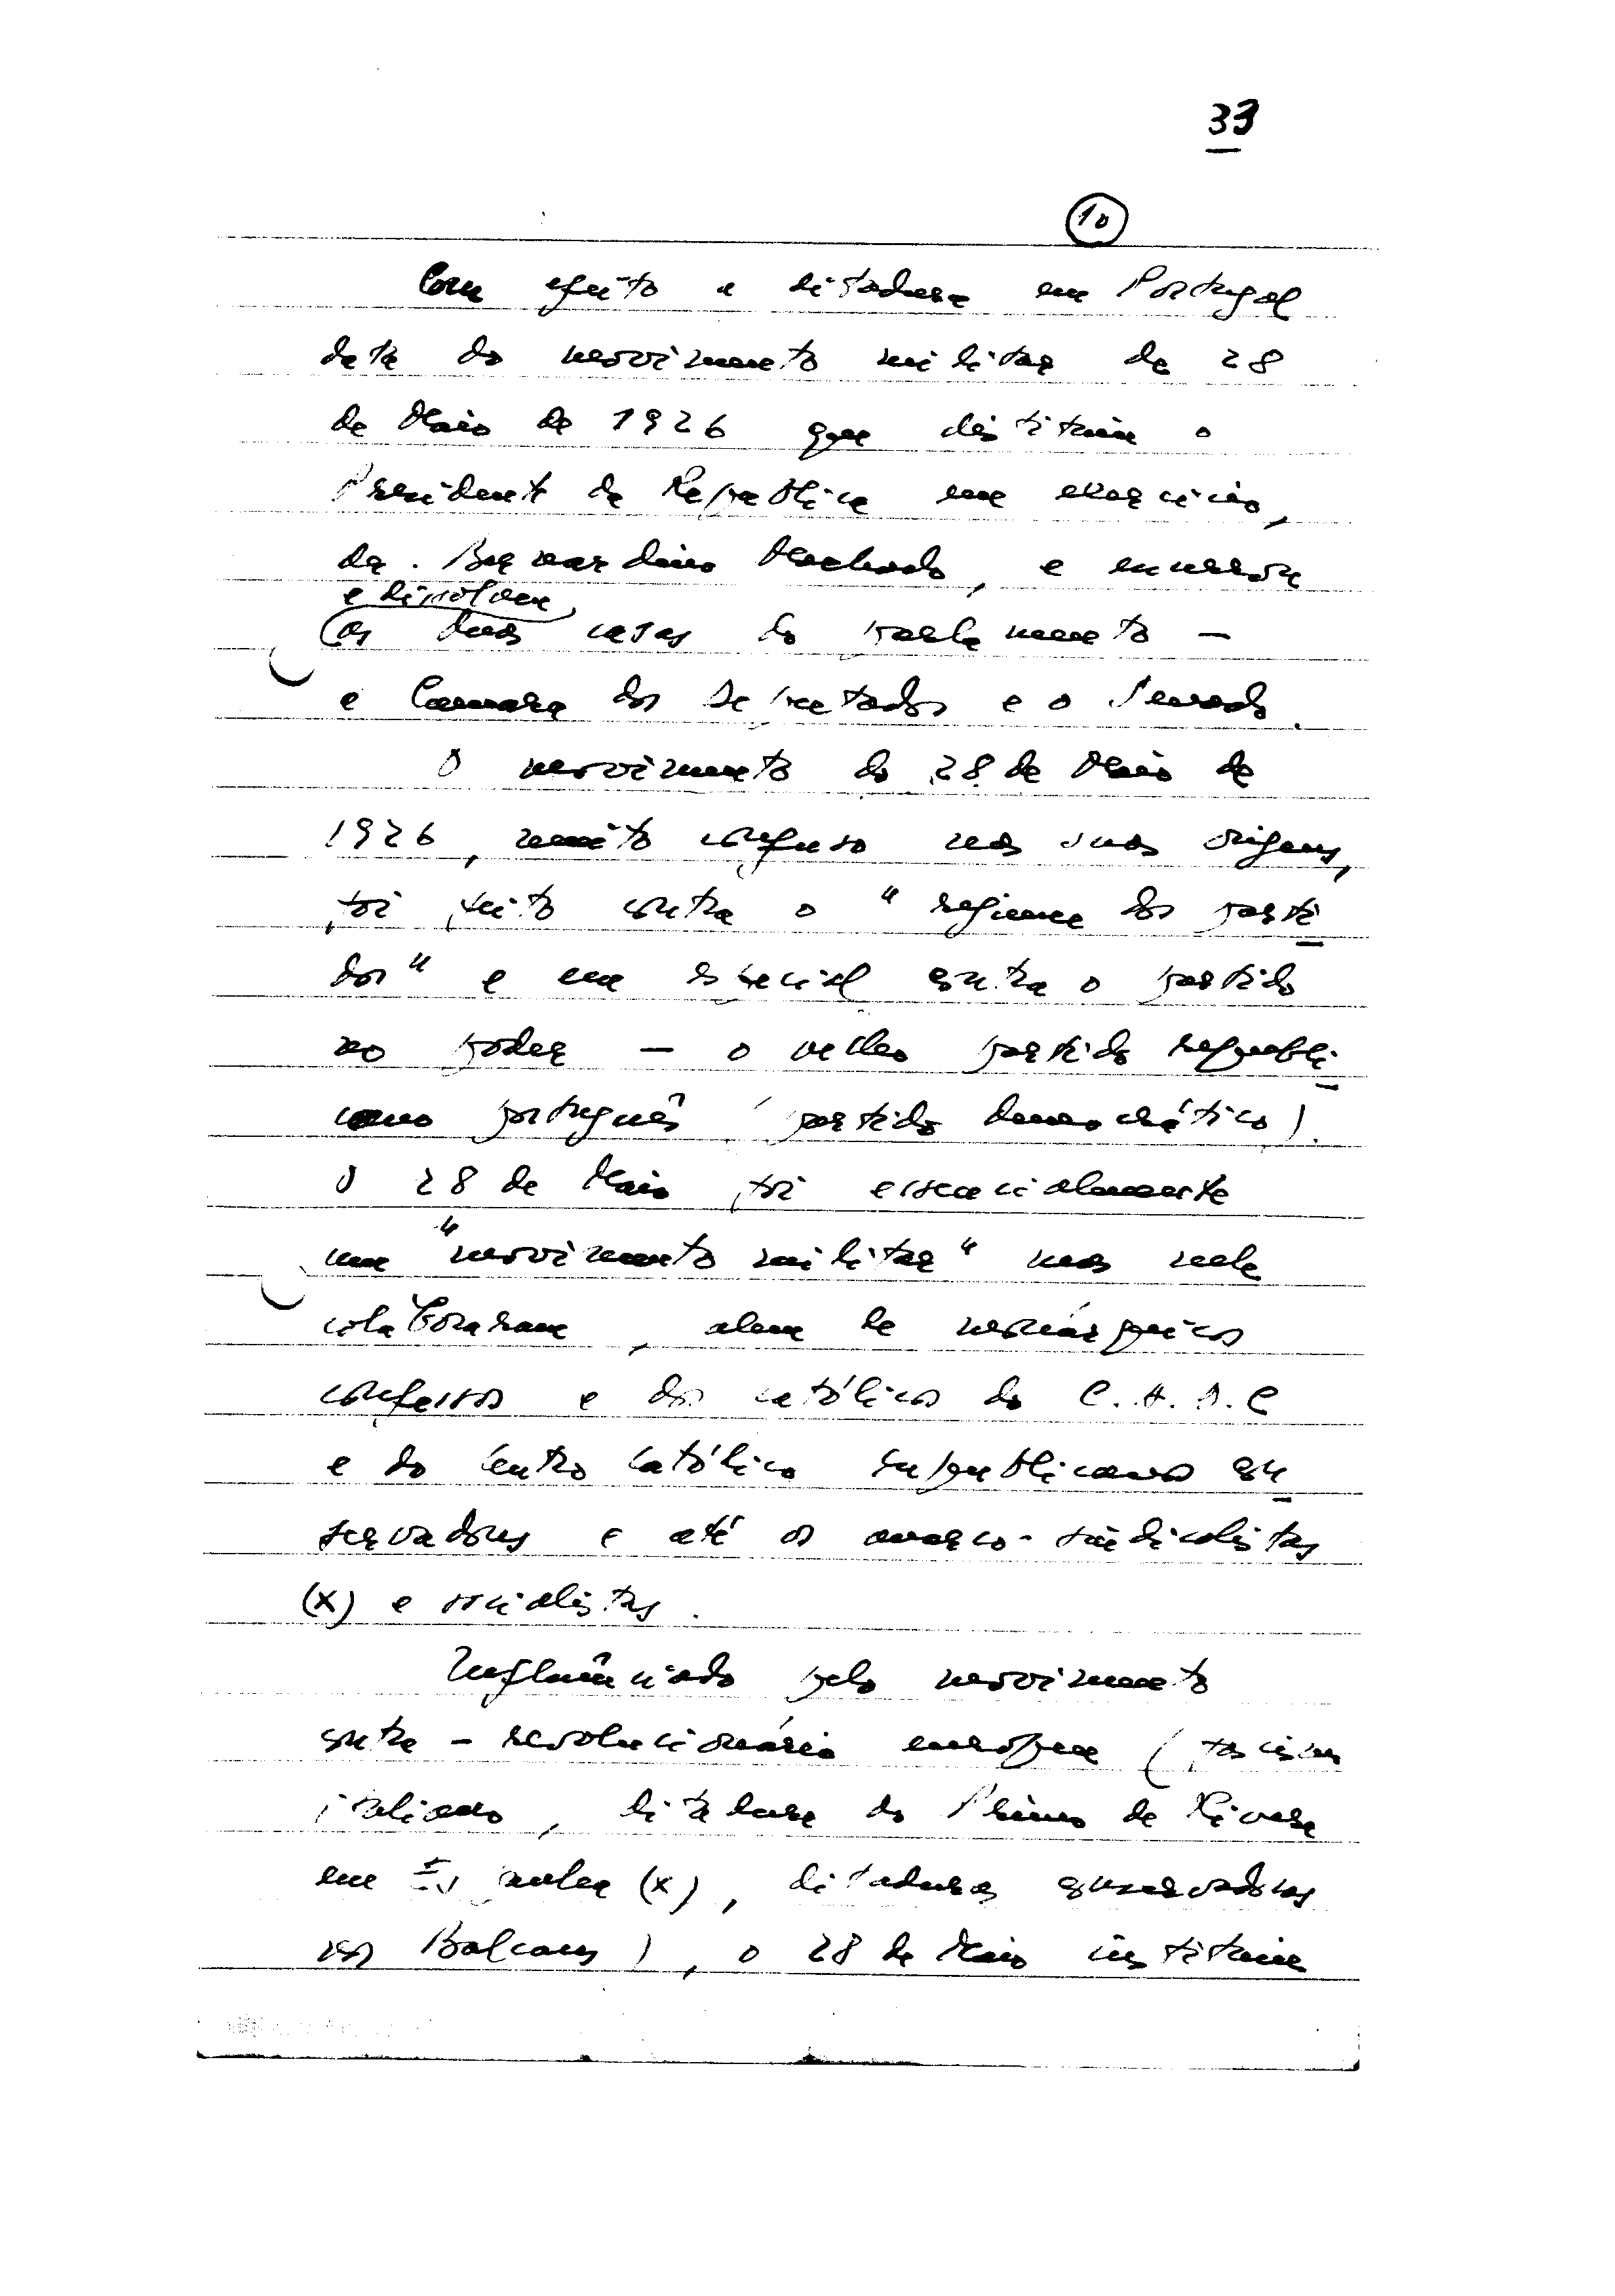 33
10
Com efeito a ditadura em Portugal
data do movimento militar de 28
de Maio de 1926 que destituiu o
Presidente da Republica em exercicio,
dr. Bernardino Machado, e encerrou
e dissolveu
as duas casas do parlamento —
a Camara dos Deputados e o Senado.
O movimento do 28 de Maio de
1926, muito confuso nas suas origens,
foi feito contra o "regime dos parti
dos" e em especial contra o partido
no poder — o velho partido republi
cano português (partido democrático).
O 28 de Maio foi essencialmente
um "movimento militar" mas nele
colaboraram, alem de monárquicos
confessos e dos católicos do C.A.D.C
e do Centro Católico republicanos con
servadores e até os anarco-sindicalistas
(x) e socialistas.
Influênciado pelo movimento
contra-revolucionário europeu (fascismo
italiano, ditadura do Primo de Rivera
em Espanha (x), ditaduras conservadoras
nos Balcans), o 28 de Maio instituiu